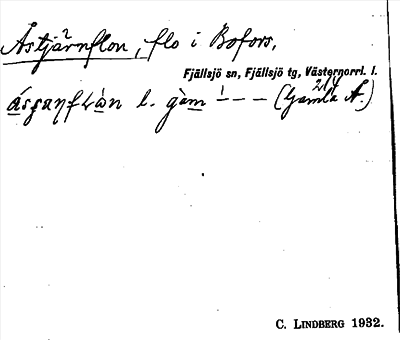 Åstjärnflon, flo i Bofors,
Fjällsjö sn, Fjällsjö tg, Västernorrl. l.
l. gàm ı́ – – – (Gamla Å.)
C. LINDBERG 1932.